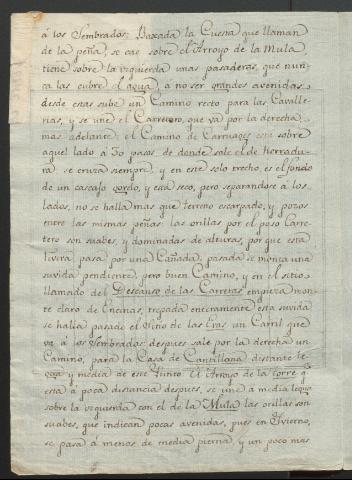 á los Sembrados: Baxada la Cuesta que llaman
de la peña, se cae sobre el Arroyo de la Mula,
tiene sobre la izquierda unas pasaderas, que nun-
ca las cubre el agua, á no ser grandes avenidas,
desde estas sube un Camino recto para las Cavalle-
rias, y se une el Carretero, que vá por la derecha
mas adelante: el Camino de Carruages está sobre
aquel lado á 30 pasos de donde sale el de herradu-
ra se cruza siempre, y en este solo trecho, es el fondo
de un cascajo gordo, y está seco, pero separandose á los
lados, no se halla mas que terreno escarpado, y pozos
entre las mismas peñas: las orillas por el paso Carre-
tero son suabes, y dominadas de alturas, por que esta
rivera pasa por una Cañada, pasada se monta una
suvida pendiente, pero buen Camino, y en el sitio
llamado del Descanso de las Carretas empieza mon-
te claro de Encinas, repada enteramente esta suvida
se halla pasado el Sitio de las Cras un Carril que
vá á los Sembrados: despues sale por la derecha un
Camino, para la Casa de Cantillana distante le-
gua y media de este Punto. El Arroyo de la torre q.
está á poca distancia despues, se une á media legua
sobre la izquierda con el de la Mula las orillas son
suabes, que indican pocas avenidas, pues en Ivierno,
se pasa á menos de media pierna, y un poco mas